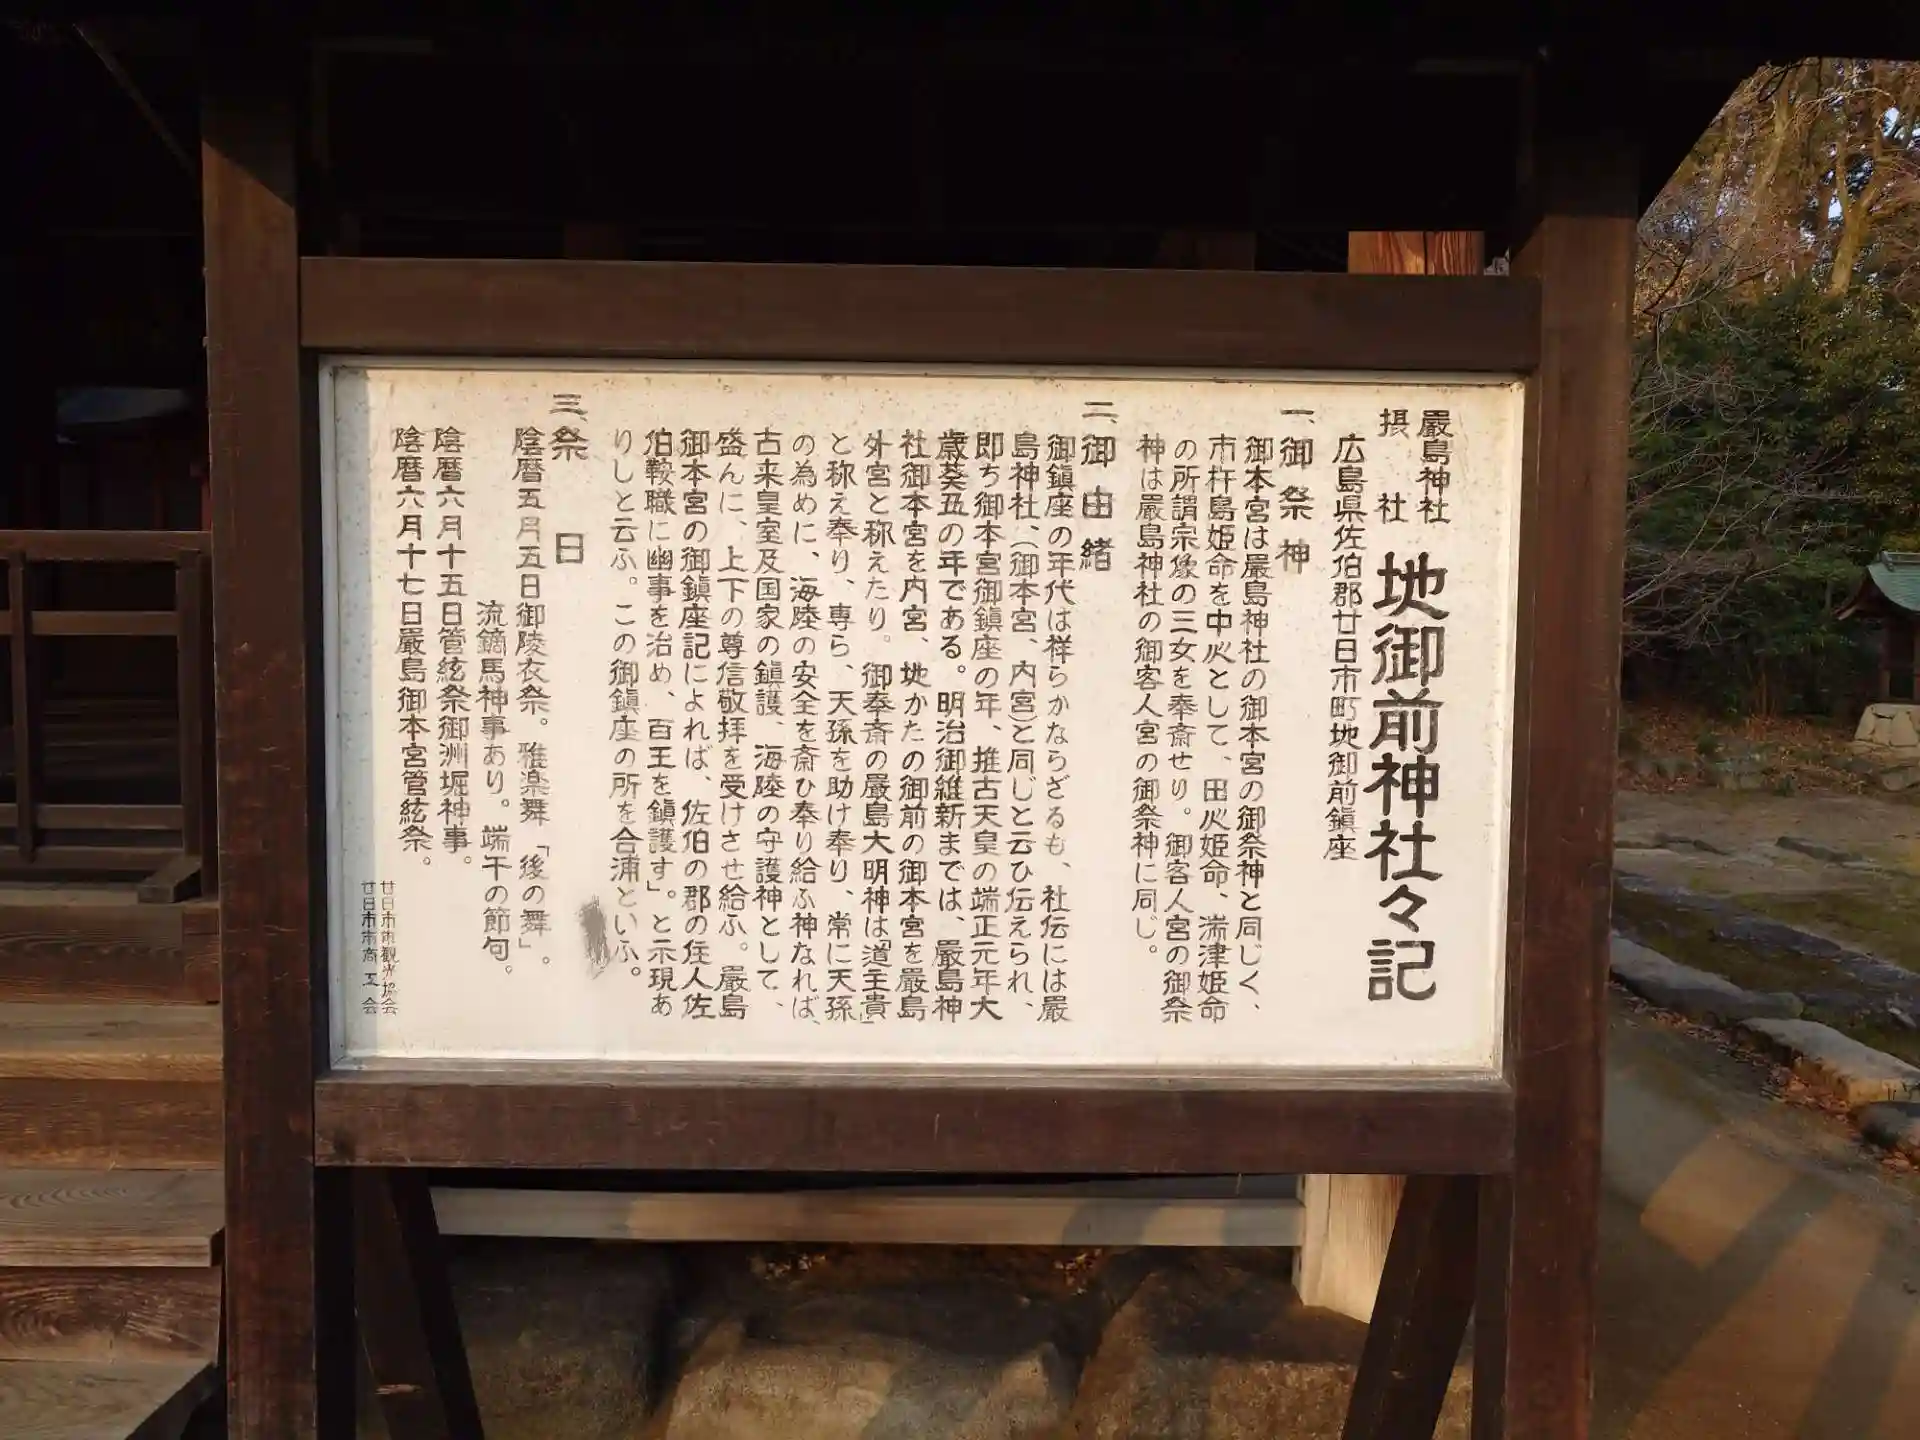 厳島神社
摂社
地御前神社々記
広島県佐伯郡廿日市町地御前鎮座
一、御祭神
御本宮は厳島神社の御本宮の御祭神と同じく、
市杵島姫命を中火として、田火姫命、湍津姫命
の所謂宗像の三女を奉斎せり。御客人宮の御祭
神は厳島神社の御客人宮の御祭神に同じ。
二、御由緒
御鎮座の年代は祥らかならざるも、社伝には厳
島神社、(御本宮、内宮)と同じと云ひ伝えられ、
即ち御本宮御鎮座の年、推古天皇の端正元年大
歳葵丑の年である。明治御維新までは、厳島神
社御本宮を内宮、地かたの御前の御本宮を厳島
外宮と称えたり。御奉斎の厳島大明神は「道主貴」
と称え奉り、専ら、天孫を助け奉り、常に天孫
の為めに、海陸の安全を斎ひ奉り給ふ神なれば、
古来皇室及国家の鎮護、海陸の守護神として、
盛んに、上下の尊信敬拝を受けさせ給ふ。厳島
御本宮の御鎮座記によれば、佐伯の郡の住人佐
伯鞍職に幽事を治め、百王を鎮護す」。と示現あ
りしと云ふ。この御鎮座の所を合浦といふ。
三、祭日
陰暦五月五日御陵衣祭。雅楽舞「後の舞」。
流鏑馬神事あり。端午の節句。
陰暦六月十五日管絃祭御洲堀神事。
陰暦六月十七日厳島御本宮管絃祭。
廿日市市観光協会
廿日市市商工会